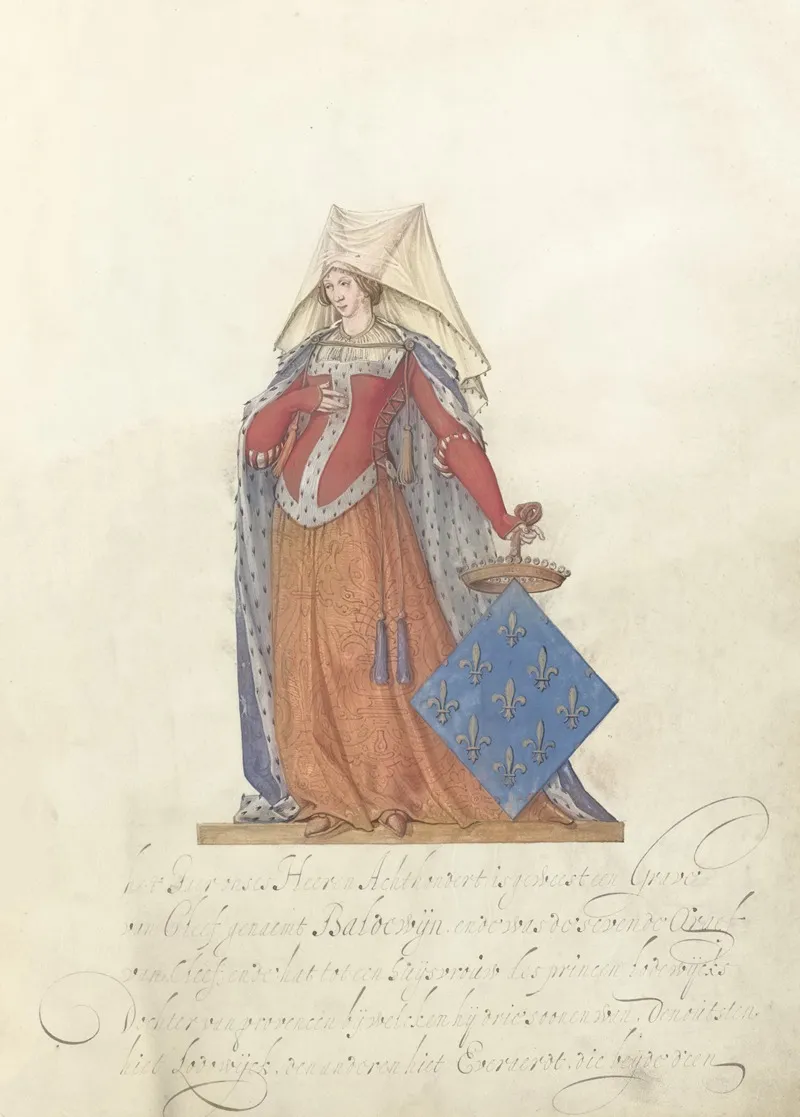 het Jaer onses Heeren Achthondert is geweest een Grave
van Cleef genaemt Baldewijn. ende was de sevende Graef
van Cleef, ende hat tot een huijsvrouw des princen Lodewijcks
Dochter van provencen bij welcken hij drie soonen wan. Den outsten
hiet Lodewijck, den anderen hiet Everaerdt, die beijde deen